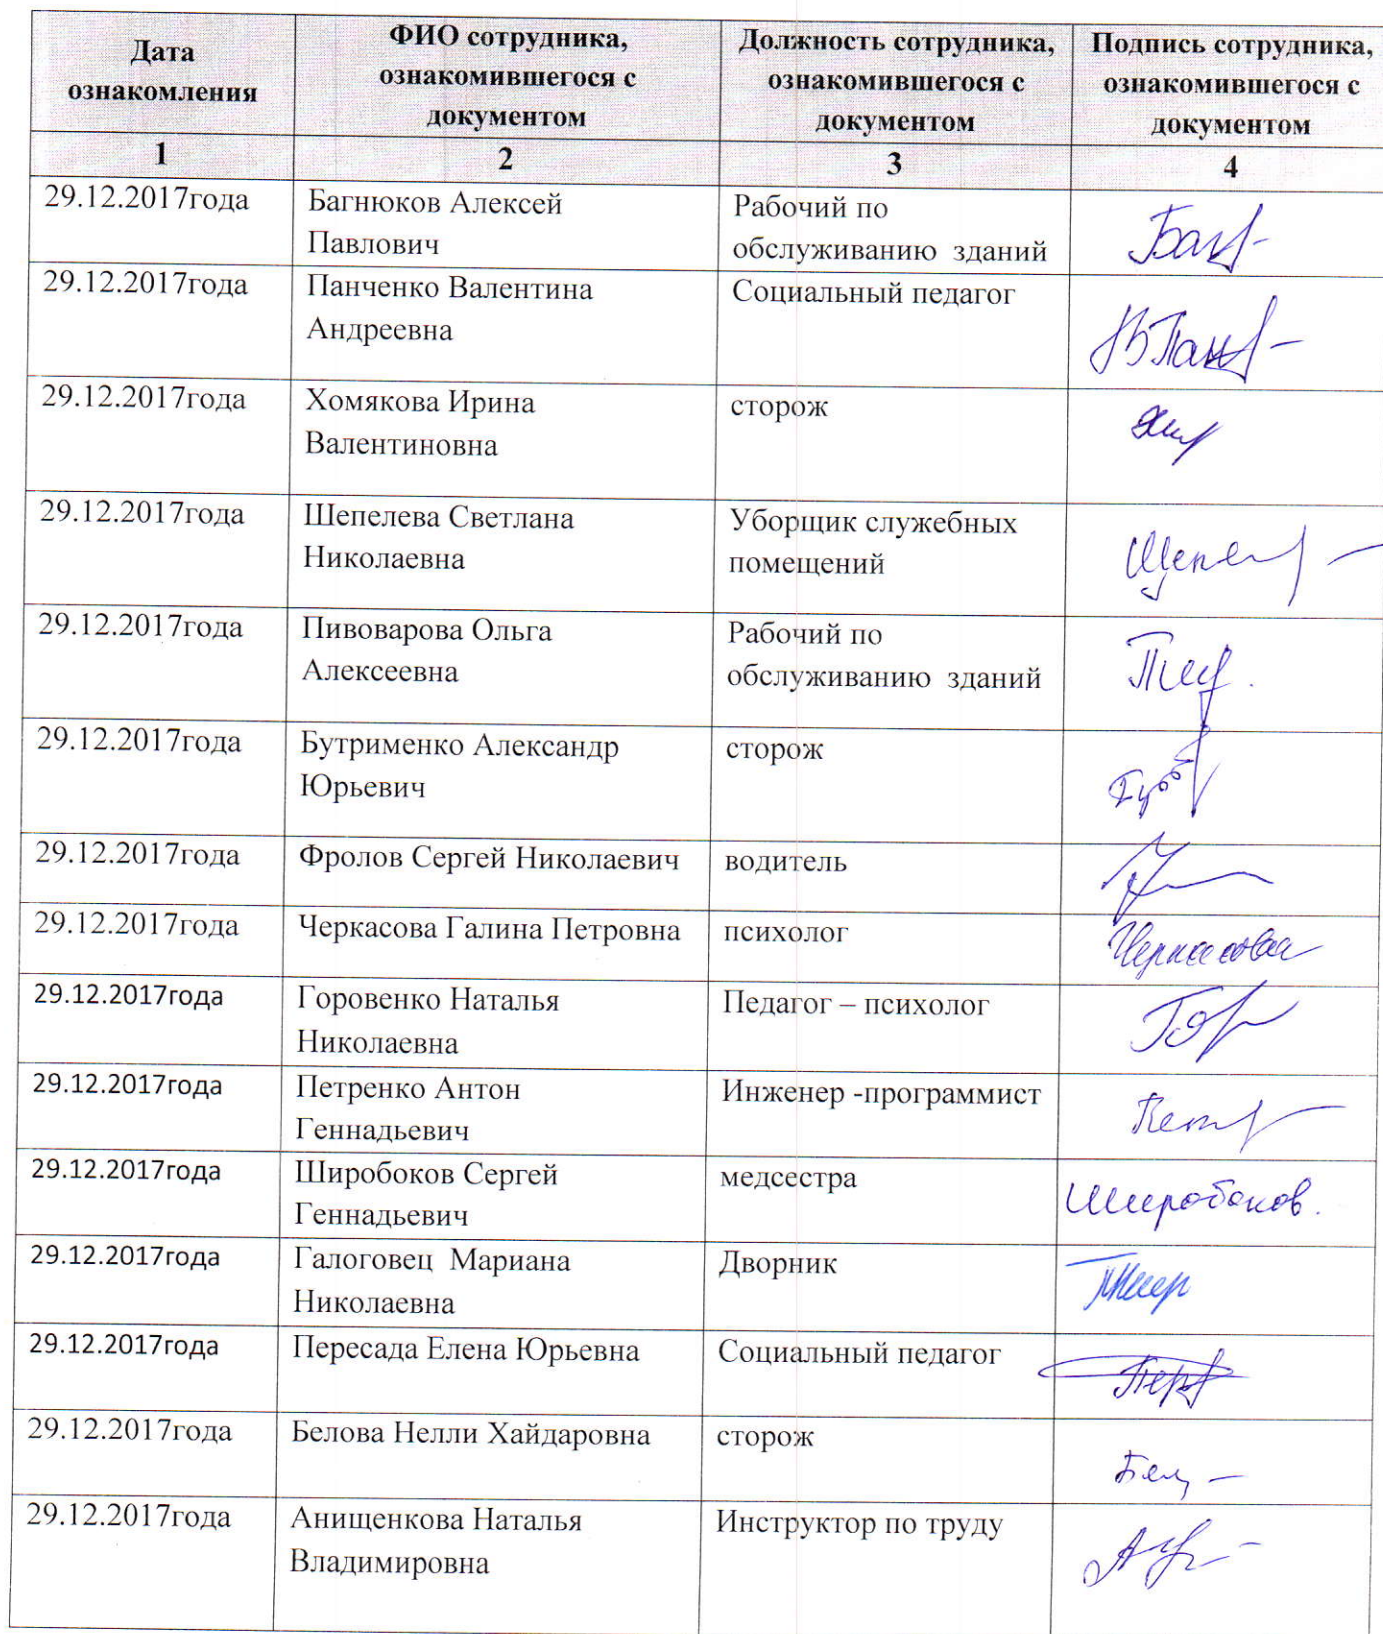 Дата
ознакомления
ФИО сотрудника,
ознакомившегося с
документом
Должность сотрудника,
ознакомившегося с
документом
Подпись сотрудника,
ознакомившегося с
документом
1 2 3 4
29.12.2017года
Багнюков Алексей
Павлович
Рабочий по
обслуживанию зданий
29.12.2017года
Панченко Валентина
Андреевна
Социальный педагог
29.12.2017года
Хомякова Ирина
Валентиновна
сторож
29.12.2017года
Шепелева Светлана
Николаевна
Уборщик служебных
помещений
29.12.2017года
Пивоварова Ольга
Алексеевна
Рабочий по
обслуживанию зданий
29.12.2017года
Бутрименко Александр
Юрьевич
сторож
29.12.2017года
Фролов Сергей Николаевич
водитель
29.12.2017года
Черкасова Галина Петровна
психолог
Черкасова
29.12.2017года
Горовенко Наталья
Николаевна
Педагог – психолог
29.12.2017года
Петренко Антон
Геннадьевич
Инженер -программист
29.12.2017года
Широбоков Сергей
Геннадьевич
медсестра
Широбоков.
29.12.2017года
Галоговец Мариана
Николаевна
Дворник
29.12.2017года
Пересада Елена Юрьевна
Социальный педагог
29.12.2017года
Белова Нелли Хайдаровна
сторож
29.12.2017года
Анищенкова Наталья
Владимировна
Инструктор по труду